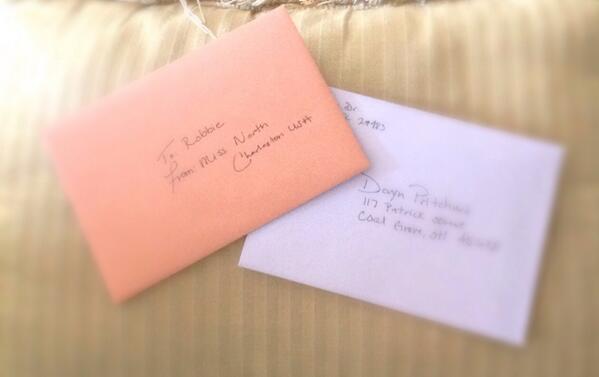 To: Robbie
From Miss North
Charleston USA
Dr.
29483
Pritchard
117 Patrick
Coal Grove, OH